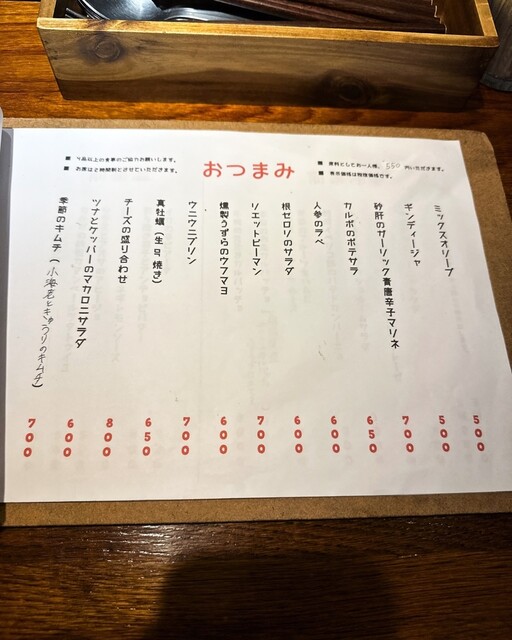 品以上の食事のご協力お願いします。
■ お席は2時間制とさせていただきます。
おつまみ
■ 席料としてお一人様、550 円いただきます。
■ 表示価格は税抜価格です。
ミックスオリーブ 500
ギンディージャ 500
砂肝のガーリック青唐辛子マリネ 700
カルボのポテサラ 650
人参のラペ 600
根セロリのサラダ 600
リエットピーマン 700
燻製うずらのウフマヨ 600
ウニウニプリン 700
真牡蠣（生 焼き） 650
チーズの盛り合わせ 800
ツナとケッパーのマカロニサラダ 600
季節のキムチ（小海老ときゅうりのキムチ） 700